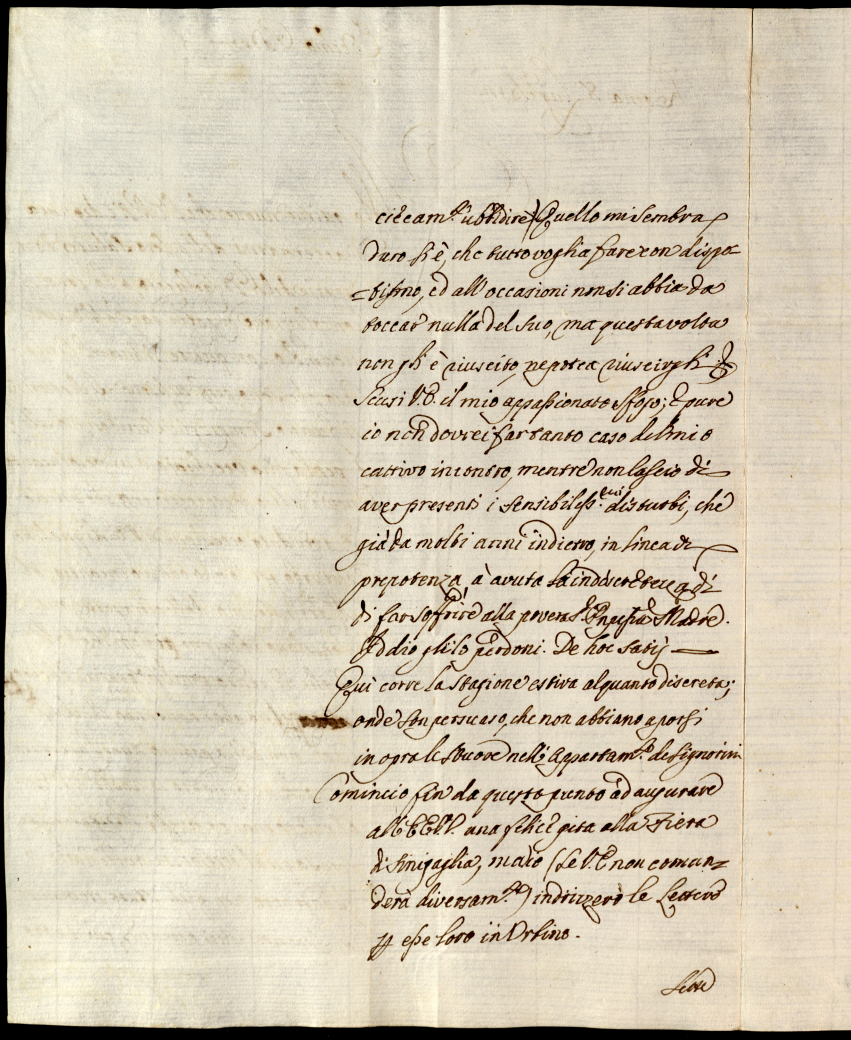 ciecam.te ubbidire) Quello mi sembra
duro si è, che tutto voglia fare con dispo-
=tismo, ed all'occasioni non si abbia da
toccar nulla del suo, ma questa volta
non gli è riuscito, ne potea riuscirgli. E
scusi V.E. il mio appassionato sfogo; E pure
io non dovrei far tanto caso del mio
cattivo incontro, mentre non lascio di
aver presenti i sensibiliss.mi disturbi, che
già da molti anni indietro, in linea di
prepotenza à avuta la indiscretezza di
di far soffrire alla povera Sig.ra Pn̄cipessa Madre.
Iddio glilo perdoni. De hoc satis —
Qui corre la stagione estiva alquanto discreta;
onde son persuaso, che non abbiano a porsi
in opra le stuore nell'Appartam.to de Signorini
Comincio fin da questo punto ad augurare
all'EE.VV. una felice gita alla Fiera
di Sinigaglia, ma io (se V.E. non coman=
derà diversam.te) indrizzerò le Lettere
p esse loro in Urbino.